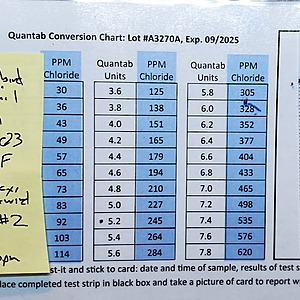 Quantab Conversion Chart: Lot #A3270A, Exp. 09/2025
PPM Chloride Quantab Units PPM Chloride Quantab Units PPM Chloride
30 3.6 125 5.8 305
36 3.8 138 6.0 328
43 4.0 151 6.2 352
49 4.2 165 6.4 377
57 4.4 179 6.6 404
65 4.6 194 6.8 433
73 4.8 210 7.0 465
83 5.0 227 7.2 498
92 5.2 245 7.4 535
103 5.4 264 7.6 575
114 5.6 284 7.8 620
F
#2
st-it and stick to card: date and time of sample, results of test s
lace completed test strip in black box and take a picture of card to report w